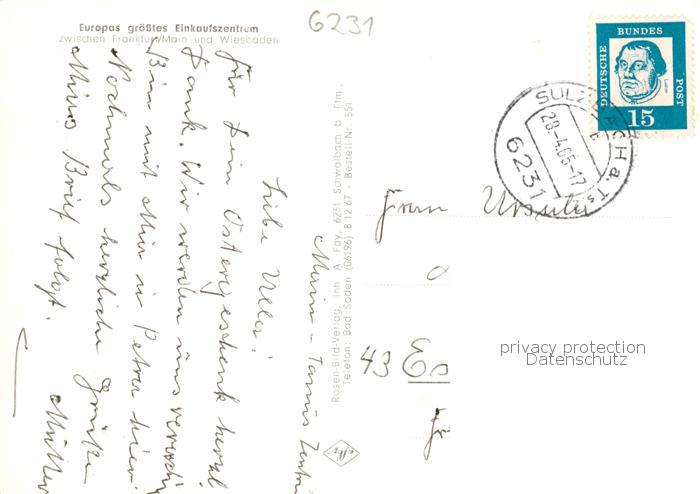 6231
Europas größtes Einkaufszentrum
zwischen Frankfurt/Main und Wiesbaden
DEUTSCHE BUNDES POST
15
SULZBACH a. Ts.
28.4.65-17
6231
Main-Taunus Zentr
Liebe Ulla!
Für Dein Ostergeschenk herzl
Dank. Wir werden uns
Bin mit Mia u Petra hier.
Nochmals herzliche Grüße
Brief folgt.
Mutter
Rosen-Bild-Verlag, Inh. A. Fay, 6231 Schwalbach b. Ffm.,
Telefon: Bad Soden (06196) 8 12 67 - Bestell-Nr. 551
Frau Ursula
43 Es
privacy protection
Datenschutz